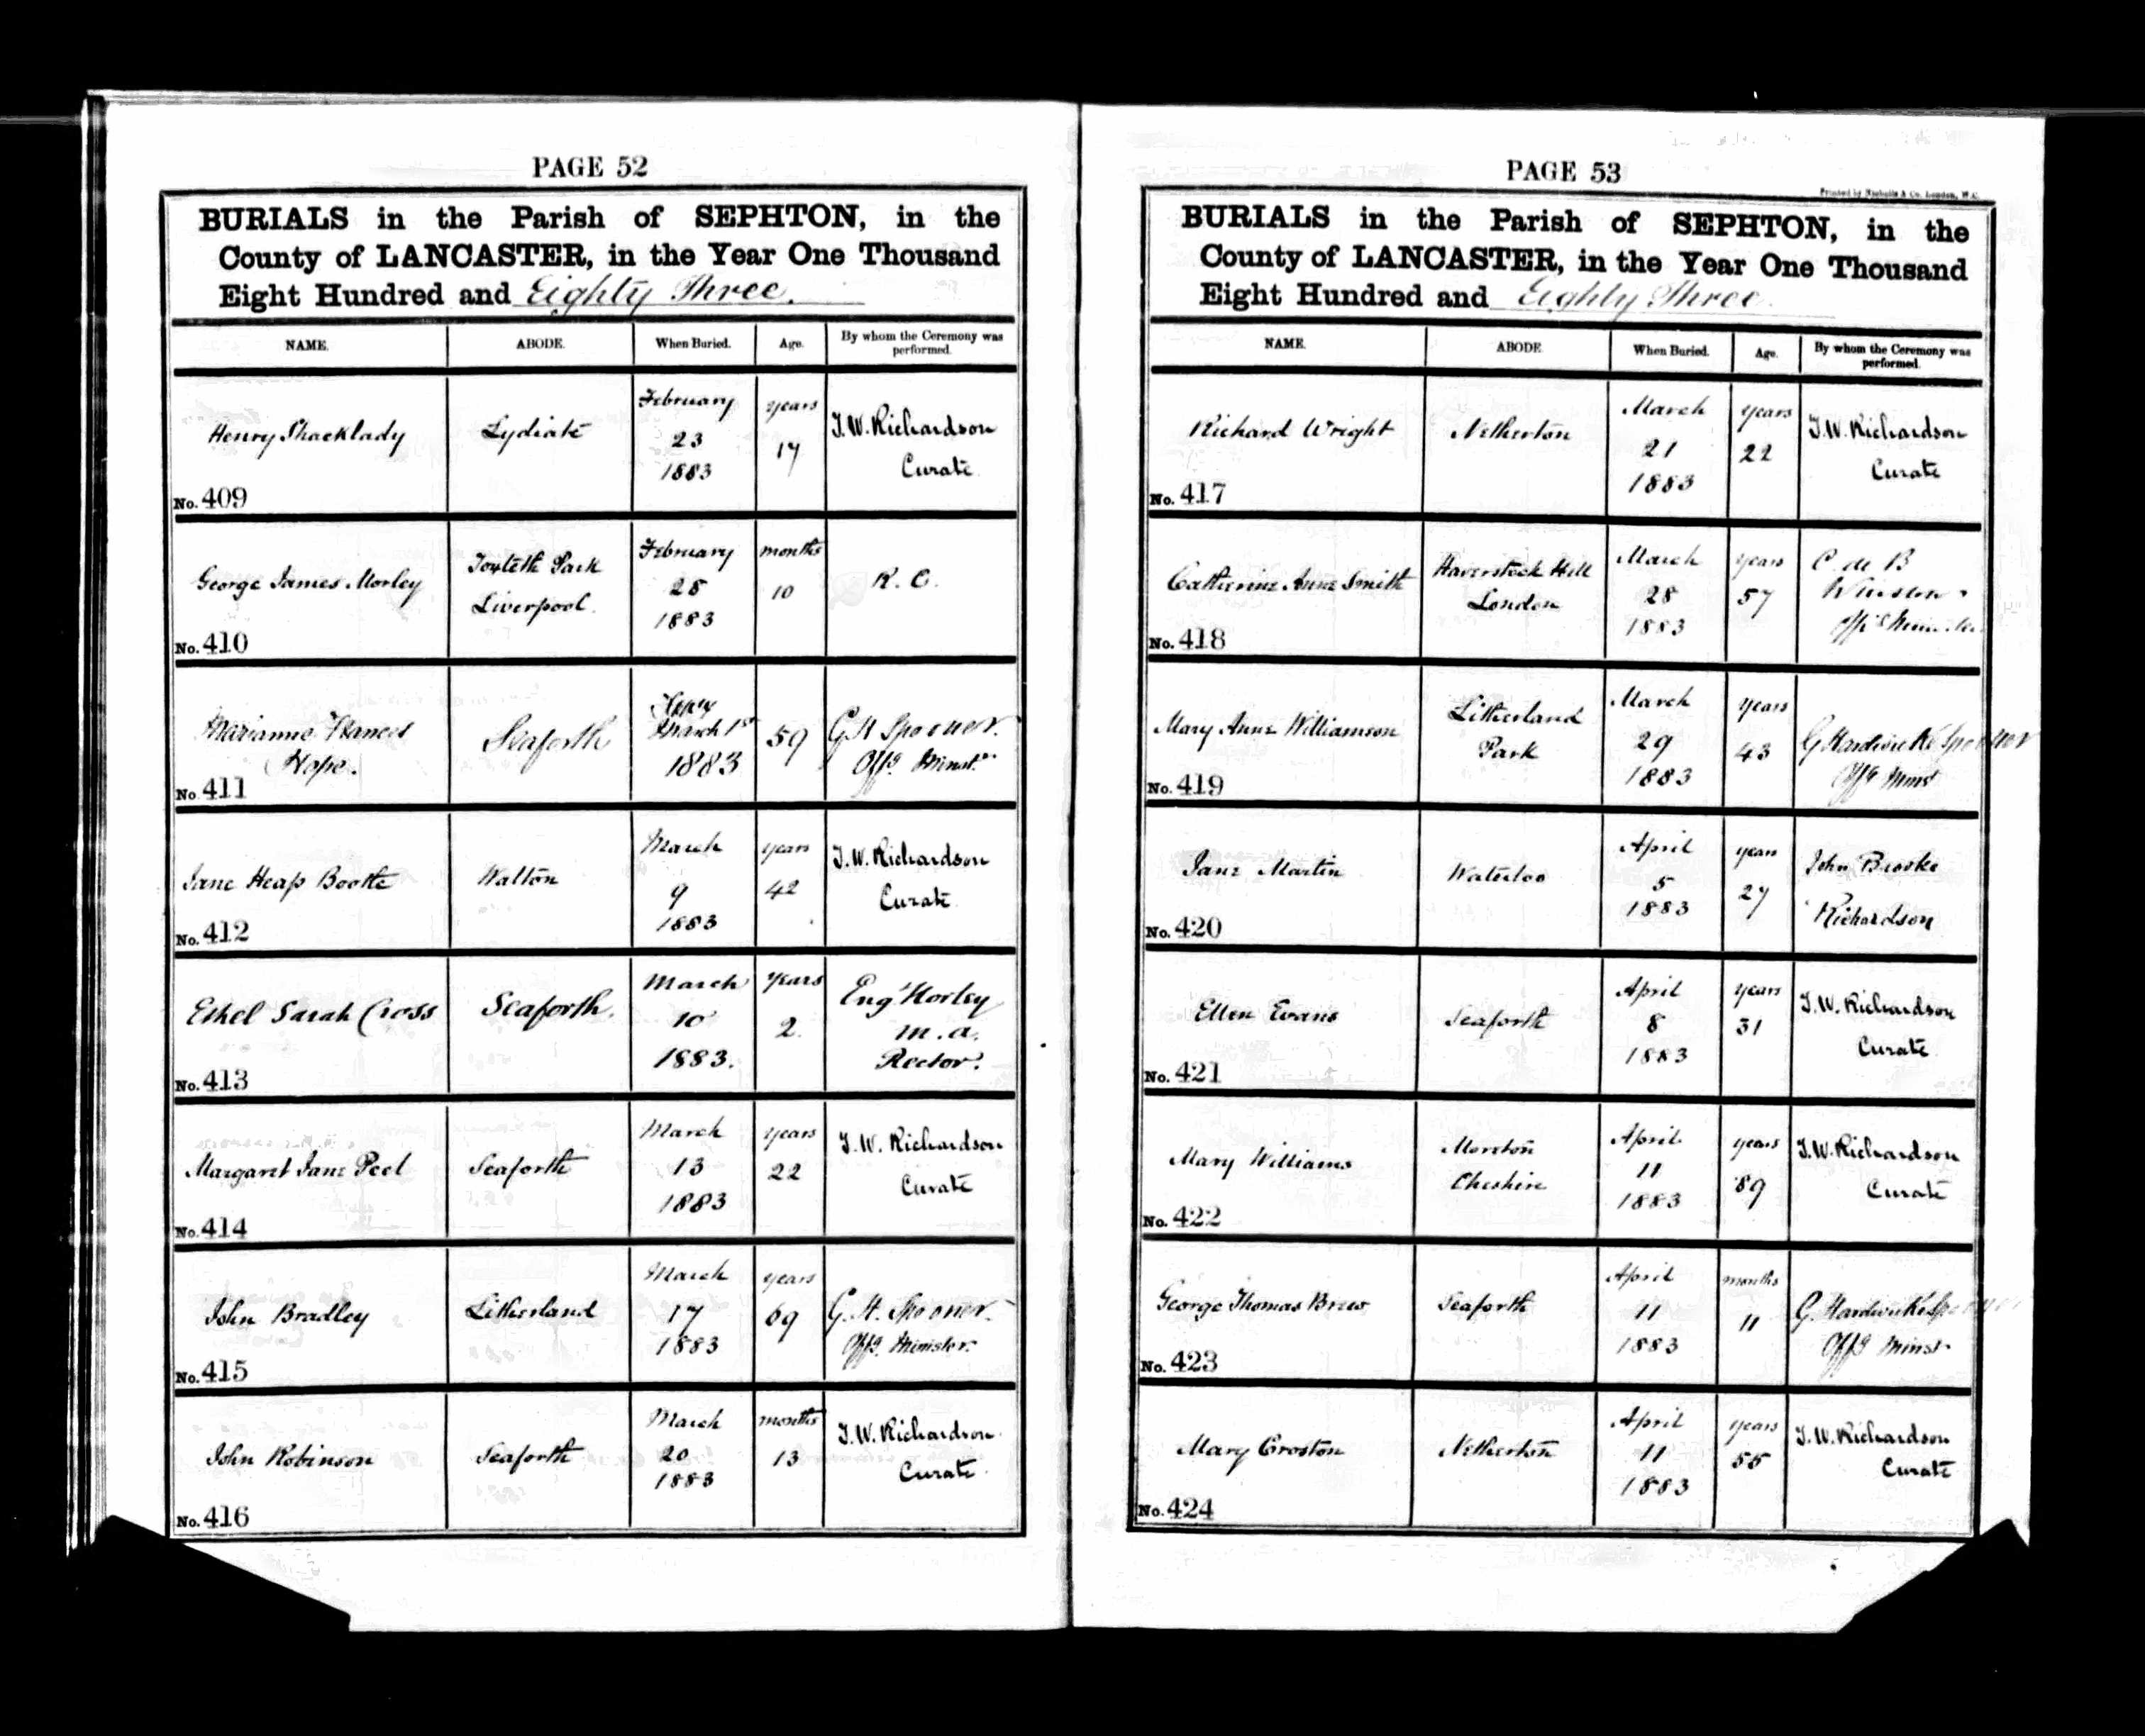 PAGE 52
BURIALS in the Parish of SEPHTON, in the
County of LANCASTER, in the Year One Thousand
Eight Hundred and Eighty Three.
NAME. ABODE. When Buried. Age. By whom the Ceremony was performed.
Henry Shacklady Lydiate February 23 1883 years 17 J.W. Richardson Curate
No. 409
George James Morley Toxteth Park Liverpool. February 28 1883 months 10 R. C.
No. 410
Marianne Frances Hope. Seaforth March 1st 1883 59 G H Spooner. Offg. Minstr.
No. 411
Jane Heap Boothe Walton March 9 1883 years 42 J.W. Richardson Curate
No. 412
Ethel Sarah Cross Seaforth. March 10 1883. years 2. Engd Horley M.A. Rector.
No. 413
Margaret Jane Peel Seaforth March 13 1883 years 22 J.W. Richardson Curate
No. 414
John Bradley Litherland March 17 1883 years 69 G. H. Spooner. Offg. Minister.
No. 415
John Robinson Seaforth March 20 1883 months 13 J.W. Richardson Curate
No. 416
PAGE 53
BURIALS in the Parish of SEPHTON, in the
County of LANCASTER, in the Year One Thousand
Eight Hundred and Eighty Three.
NAME. ABODE When Buried. Age. By whom the Ceremony was performed.
Richard Wright Netherton March 21 1883 years 22 J.W. Richardson Curate
No. 417
Catherine Anne Smith Haverstock Hill London March 28 1883 years 57 C. de B
No. 418
Mary Anne Williamson Litherland Park March 29 1883 years 43 G Hardwicke Spooner Offg Minst
No. 419
Jane Martin Waterloo April 5 1883 years 27 John Brooke Richardson
No. 420
Ellen Evans Seaforth April 8 1883 years 31 J.W. Richardson Curate
No. 421
Mary Williams Moreton Cheshire April 11 1883 years 89 J.W. Richardson Curate
No. 422
George Thomas Brew Seaforth April 11 1883 months 11 G. Hardwicke Spooner Offg Minstr
No. 423
Mary Croston Netherton April 11 1883 years 55 J.W. Richardson Curate
No. 424